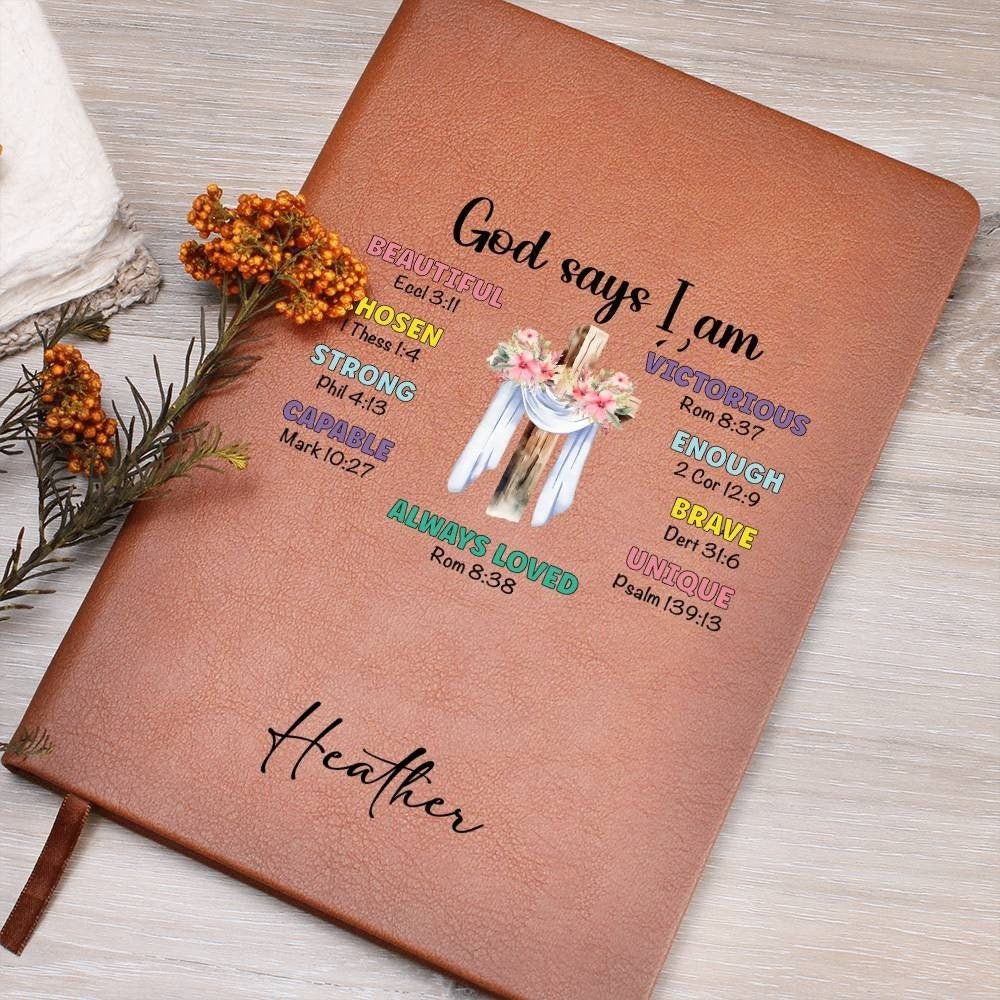 God says I am
BEAUTIFUL
Eccl 3:11
CHOSEN
1 Thess 1:4
STRONG
Phil 4:13
CAPABLE
Mark 10:27
VICTORIOUS
Rom 8:37
ENOUGH
2 Cor 12:9
BRAVE
Dert 31:6
UNIQUE
Psalm 139:13
ALWAYS LOVED
Rom 8:38
Heather